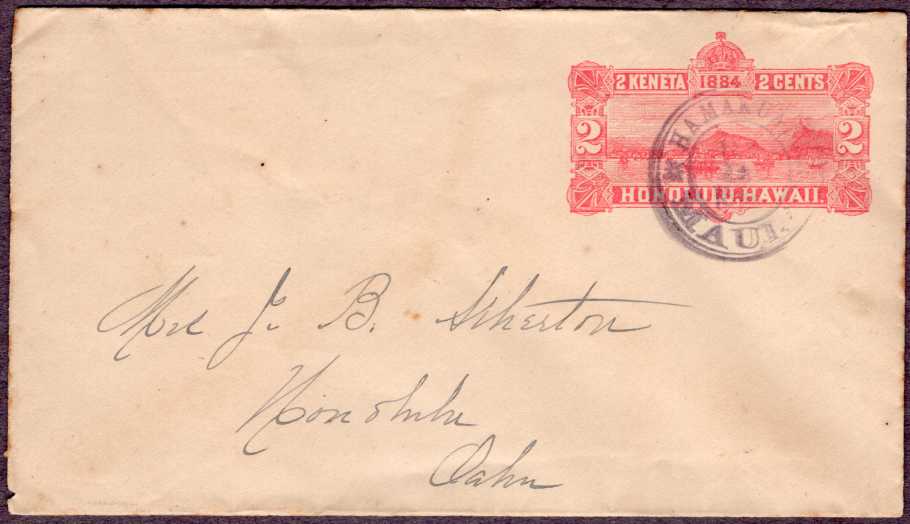 2 KENETA 1884 2 CENTS
2 2
HONOLULU, HAWAII.
MAUI.
Mrs J. B. Atherton
Honolulu
Oahu